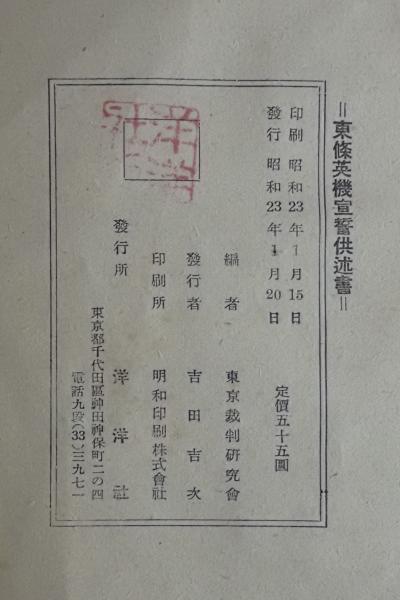 ＝東條英機宣誓供述書＝
印刷 昭和23年1月15日
發行 昭和23年1月20日
定價五十五圓
編者 東京裁判研究會
發行者 吉田吉次
印刷所 明和印刷株式會社
發行所 洋洋社
東京都千代田區神田神保町二の四
電話九段(33)三九七一